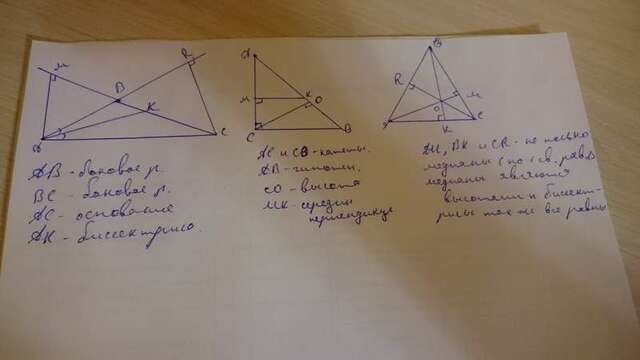 М
R
B
K
A
C
A
M
K
O
C
B
B
R
M
O
A
C
K
AB - боковое р.
BC - боковое р.
AC - основание
AK - биссектриса.
AC и CB - катеты.
AB - гипотен.
CO - высота
MK - середин
перпендикуляр
AM, BK и CR - не только
медианы (по св. равн. Δ
медианы являются
высотами и биссект-
рисы так же все равны